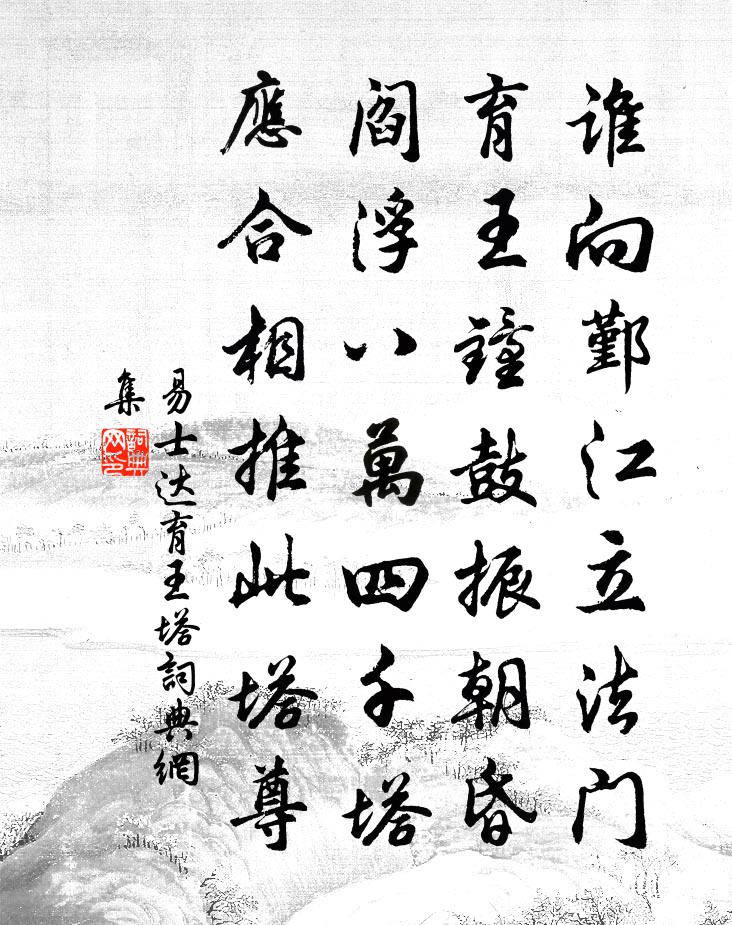 誰向鄞江立法門
育王鐘鼓振朝昏
閻浮八萬四千塔
應合相推此塔尊
易士达育王塔詞典網
集
詞典网印